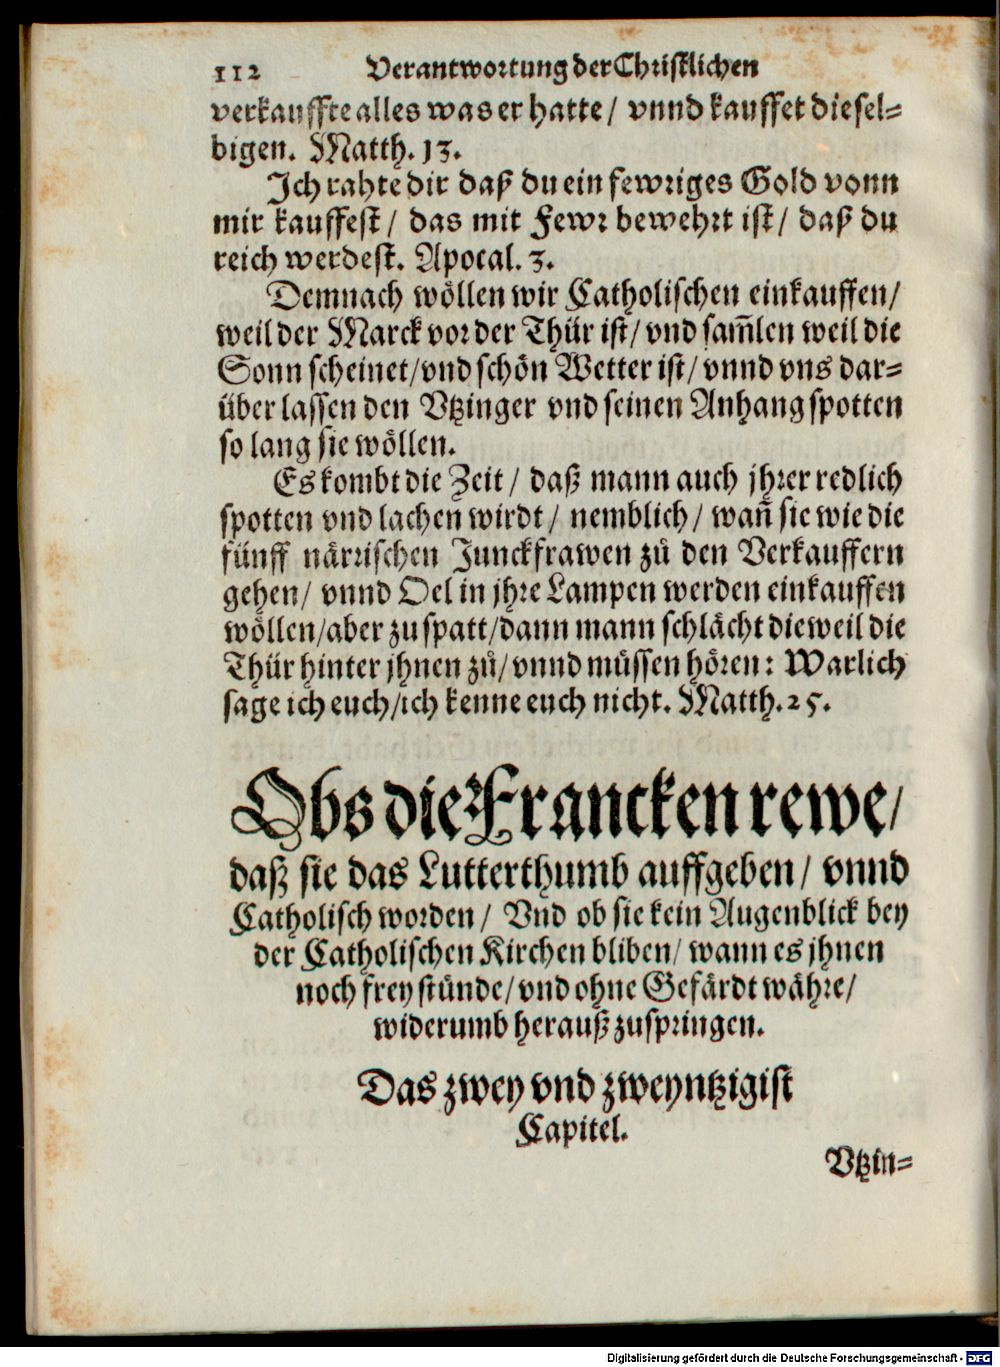 112 Verantwortung der Christlichen
verkauffte alles was er hatte / vnnd kauffet diesel-
bigen. Matth. 13.
Ich rahte dir daß du ein fewriges Gold vonn
mir kauffest / das mit Fewr bewehrt ist / daß du
reich werdest. Apocal. 3.
Demnach wöllen wir Catholischen einkauffen /
weil der Marck vor der Thür ist / vnd sam̃len weil die
Sonn scheinet / vnd schön Wetter ist / vnnd vns dar-
über lassen den Vtzinger vnd seinen Anhang spotten
so lang sie wöllen.
Es kombt die Zeit / daß mann auch jhrer redlich
spotten vnd lachen wirdt / nemblich / wañ sie wie die
fünff närrischen Junckfrawen zů den Verkauffern
gehen / vnnd Oel in jhre Lampen werden einkauffen
wöllen / aber zu spatt / dann mann schlächt dieweil die
Thür hinter jhnen zů / vnnd müssen hören: Warlich
sage ich euch / ich kenne euch nicht. Matth. 25.
Obs die Francken rewe /
daß sie das Lutterthumb auffgeben / vnnd
Catholisch worden / Vnd ob sie kein Augenblick bey
der Catholischen Kirchen bliben / wann es jhnen
noch frey stünde / vnd ohne Gefärdt währe /
widerumb herauß zuspringen.
Das zwey vnd zweyntzigist
Capitel.
Vtzin-
Digitalisierung gefördert durch die Deutsche Forschungsgemeinschaft - DFG